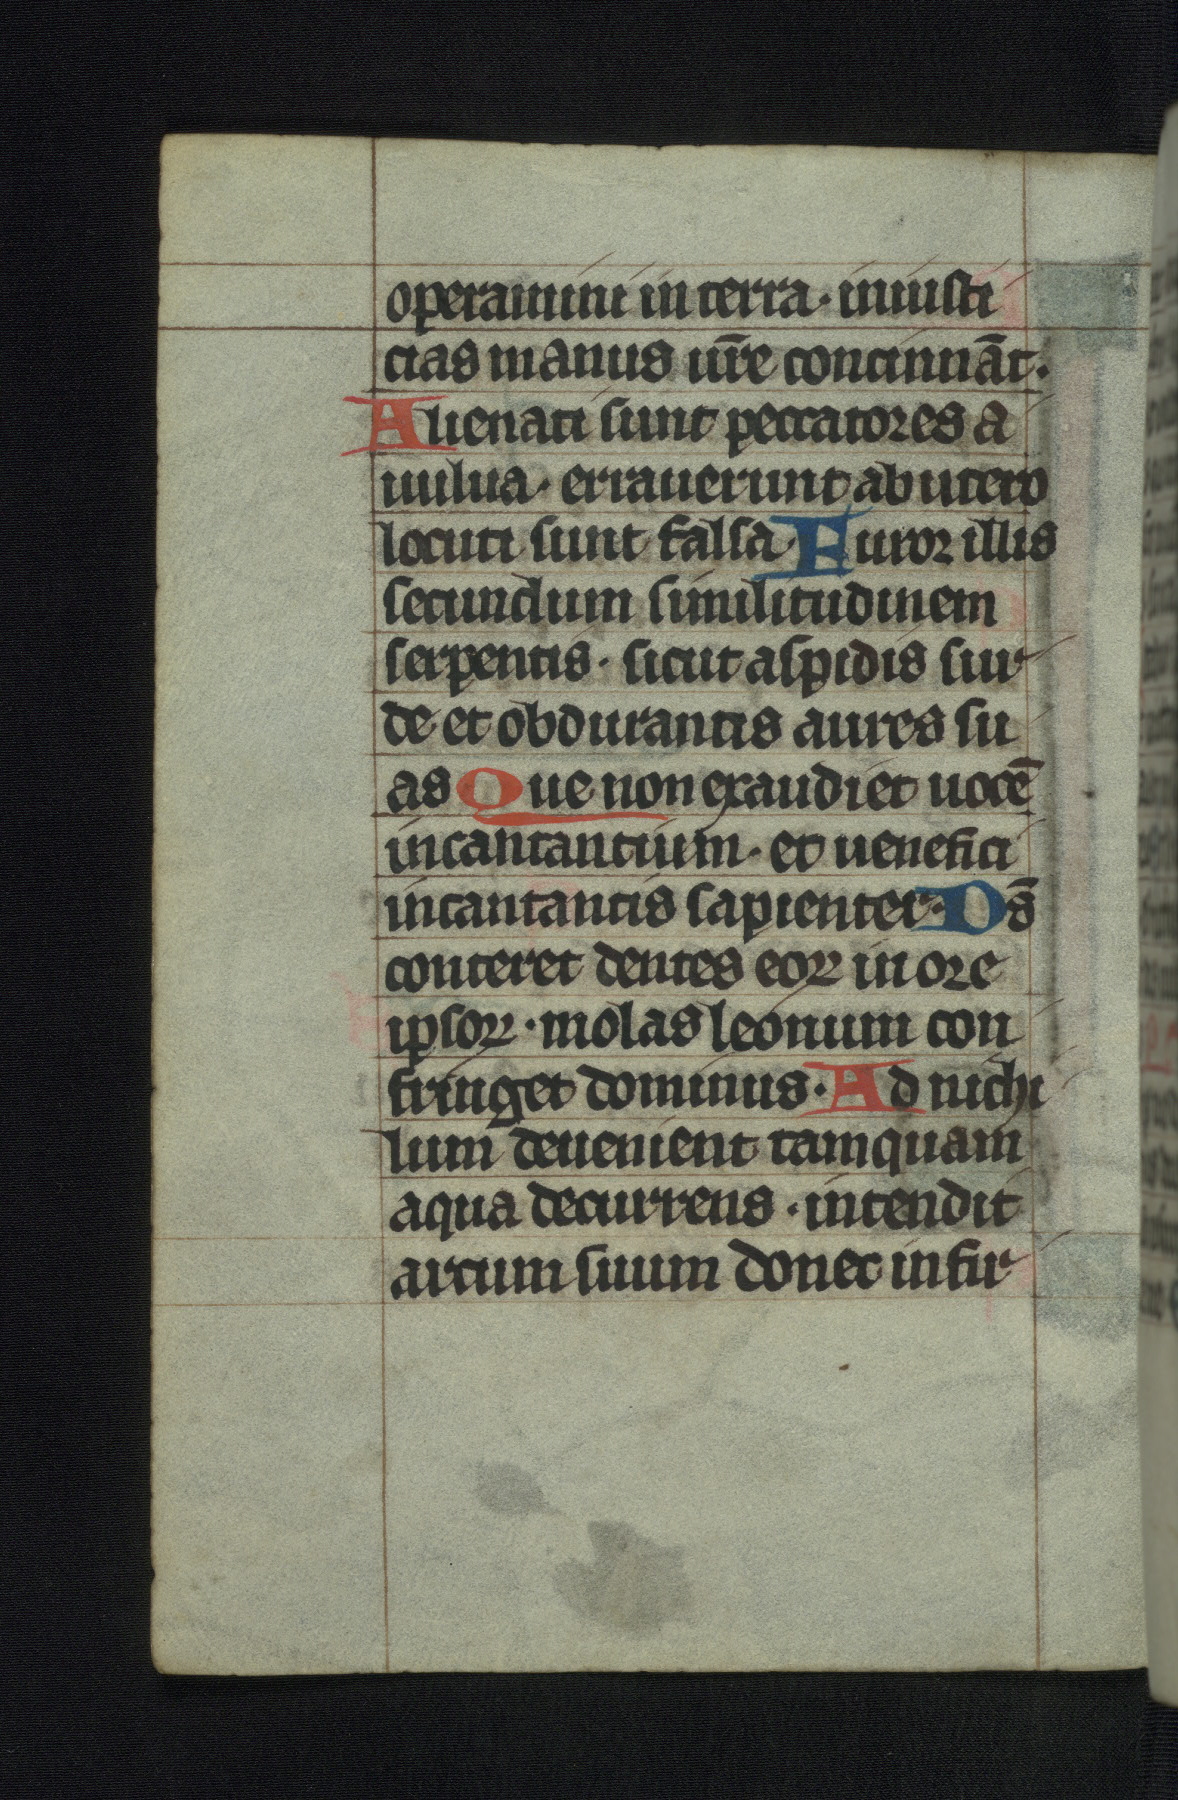 operamini in terra · iniusti
cias manus ur̄e concinnāt ·
Alienati sunt peccatores a
uulua · errauerunt ab utero
locuti sunt falsa · Furor illis
secundum similitudinem
serpentis · sicut aspidis sur
de et obdurantis aures su
as Que non exaudiet uocē
incantantium · et uenefici
incantantis sapienter · Ds̄
conteret dentes eoꝝ in ore
ipsoꝝ · molas leonum con
fringet dominus · Ad nichi
lum deuenient tamquam
aqua decurrens · intendit
arcum suum donec infir